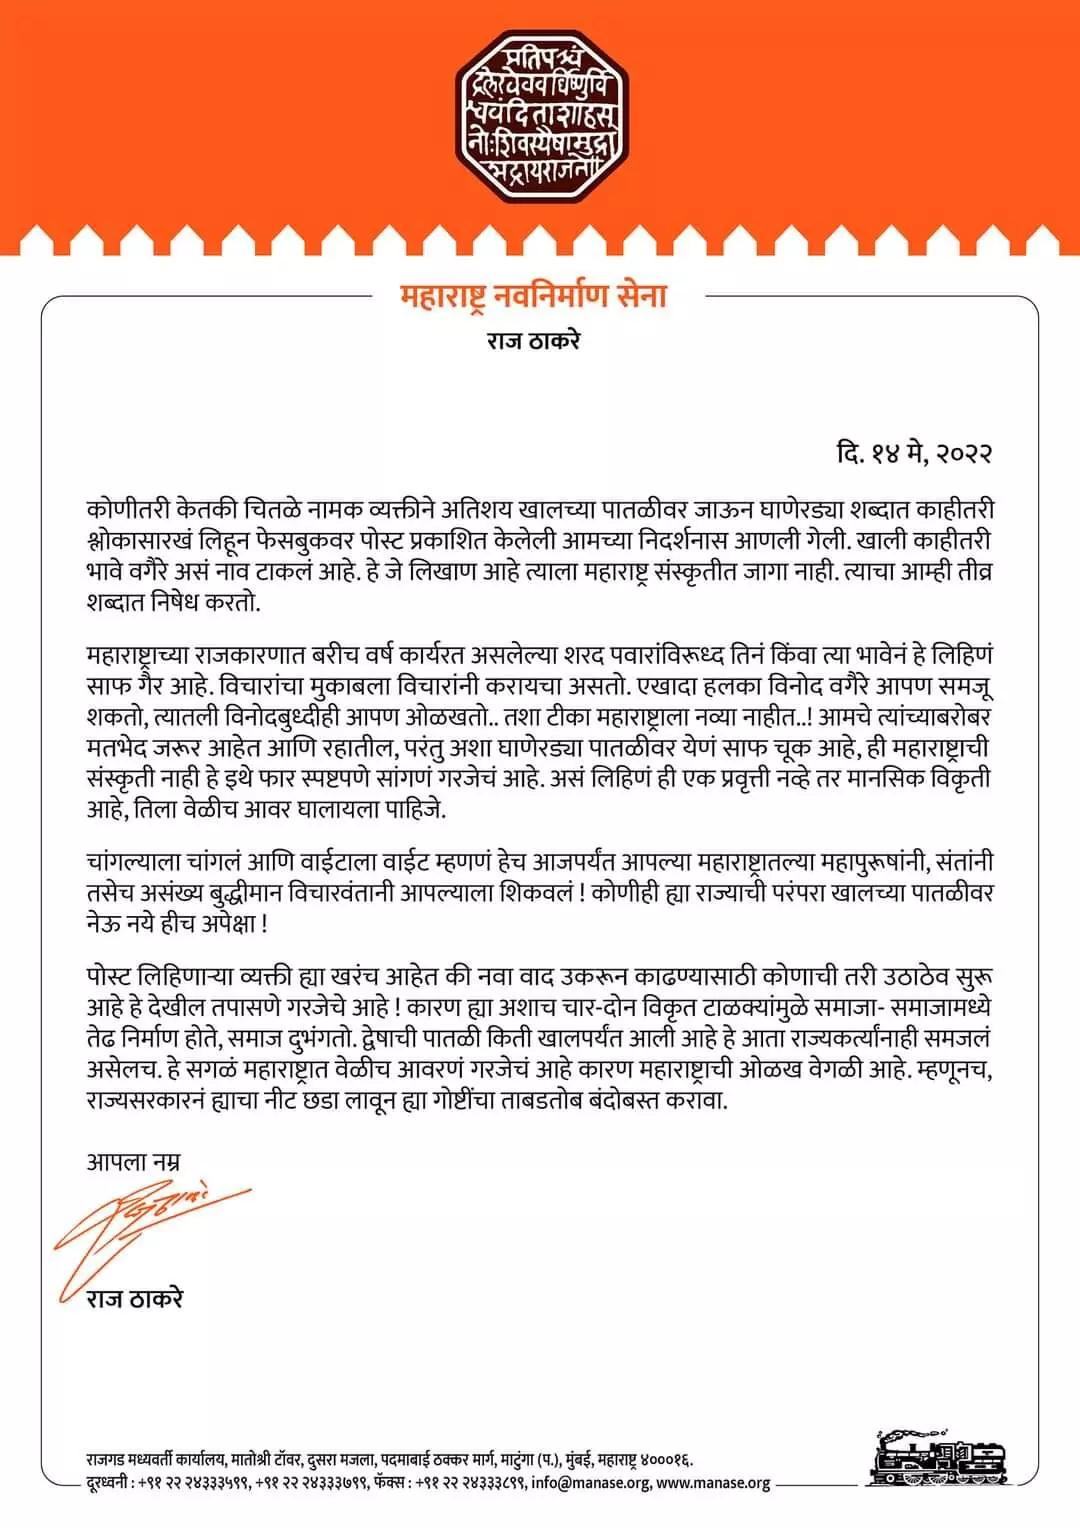 प्रतिपश्चं
द्रलेखेवव र्धिष्णुर्वि
श्ववंदिताशाहसू
नोःशिवस्यैषामुद्रा
भद्रायराजते॥
महाराष्ट्र नवनिर्माण सेना
राज ठाकरे
दि. १४ मे, २०२२
कोणीतरी केतकी चितळे नामक व्यक्तीने अतिशय खालच्या पातळीवर जाऊन घाणेरड्या शब्दात काहीतरी
श्लोकासारखं लिहून फेसबुकवर पोस्ट प्रकाशित केलेली आमच्या निदर्शनास आणली गेली. खाली काहीतरी
भावे वगैरे असं नाव टाकलं आहे. हे जे लिखाण आहे त्याला महाराष्ट्र संस्कृतीत जागा नाही. त्याचा आम्ही तीव्र
शब्दात निषेध करतो.
महाराष्ट्राच्या राजकारणात बरीच वर्ष कार्यरत असलेल्या शरद पवारांविरूध्द तिनं किंवा त्या भावेनं हे लिहिणं
साफ गैर आहे. विचारांचा मुकाबला विचारांनी करायचा असतो. एखादा हलका विनोद वगैरे आपण समजू
शकतो, त्यातली विनोदबुध्दीही आपण ओळखतो.. तशा टीका महाराष्ट्राला नव्या नाहीत..! आमचे त्यांच्याबरोबर
मतभेद जरूर आहेत आणि रहातील, परंतु अशा घाणेरड्या पातळीवर येणं साफ चूक आहे, ही महाराष्ट्राची
संस्कृती नाही हे इथे फार स्पष्टपणे सांगणं गरजेचं आहे. असं लिहिणं ही एक प्रवृत्ती नव्हे तर मानसिक विकृती
आहे, तिला वेळीच आवर घालायला पाहिजे.
चांगल्याला चांगलं आणि वाईटाला वाईट म्हणणं हेच आजपर्यंत आपल्या महाराष्ट्रातल्या महापुरूषांनी, संतांनी
तसेच असंख्य बुद्धीमान विचारवंतानी आपल्याला शिकवलं ! कोणीही ह्या राज्याची परंपरा खालच्या पातळीवर
नेऊ नये हीच अपेक्षा !
पोस्ट लिहिणाऱ्या व्यक्ती ह्या खरंच आहेत की नवा वाद उकरून काढण्यासाठी कोणाची तरी उठाठेव सुरू
आहे हे देखील तपासणे गरजेचे आहे ! कारण ह्या अशाच चार-दोन विकृत टाळक्यांमुळे समाजा- समाजामध्ये
तेढ निर्माण होते, समाज दुभंगतो. द्वेषाची पातळी किती खालपर्यंत आली आहे हे आता राज्यकर्त्यांनाही समजलं
असेलच. हे सगळं महाराष्ट्रात वेळीच आवरणं गरजेचं आहे कारण महाराष्ट्राची ओळख वेगळी आहे. म्हणूनच,
राज्यसरकारनं ह्याचा नीट छडा लावून ह्या गोष्टींचा ताबडतोब बंदोबस्त करावा.
आपला नम्र
राज ठाकरे
राजगड मध्यवर्ती कार्यालय, मातोश्री टॉवर, दुसरा मजला, पदमाबाई ठक्कर मार्ग, माटुंगा (प.), मुंबई, महाराष्ट्र ४०००१६.
दूरध्वनी : +९१ २२ २४३३३५९९, +९१ २२ २४३३३७९९, फॅक्स : +९१ २२ २४३३३८९९, info@manase.org, www.manase.org